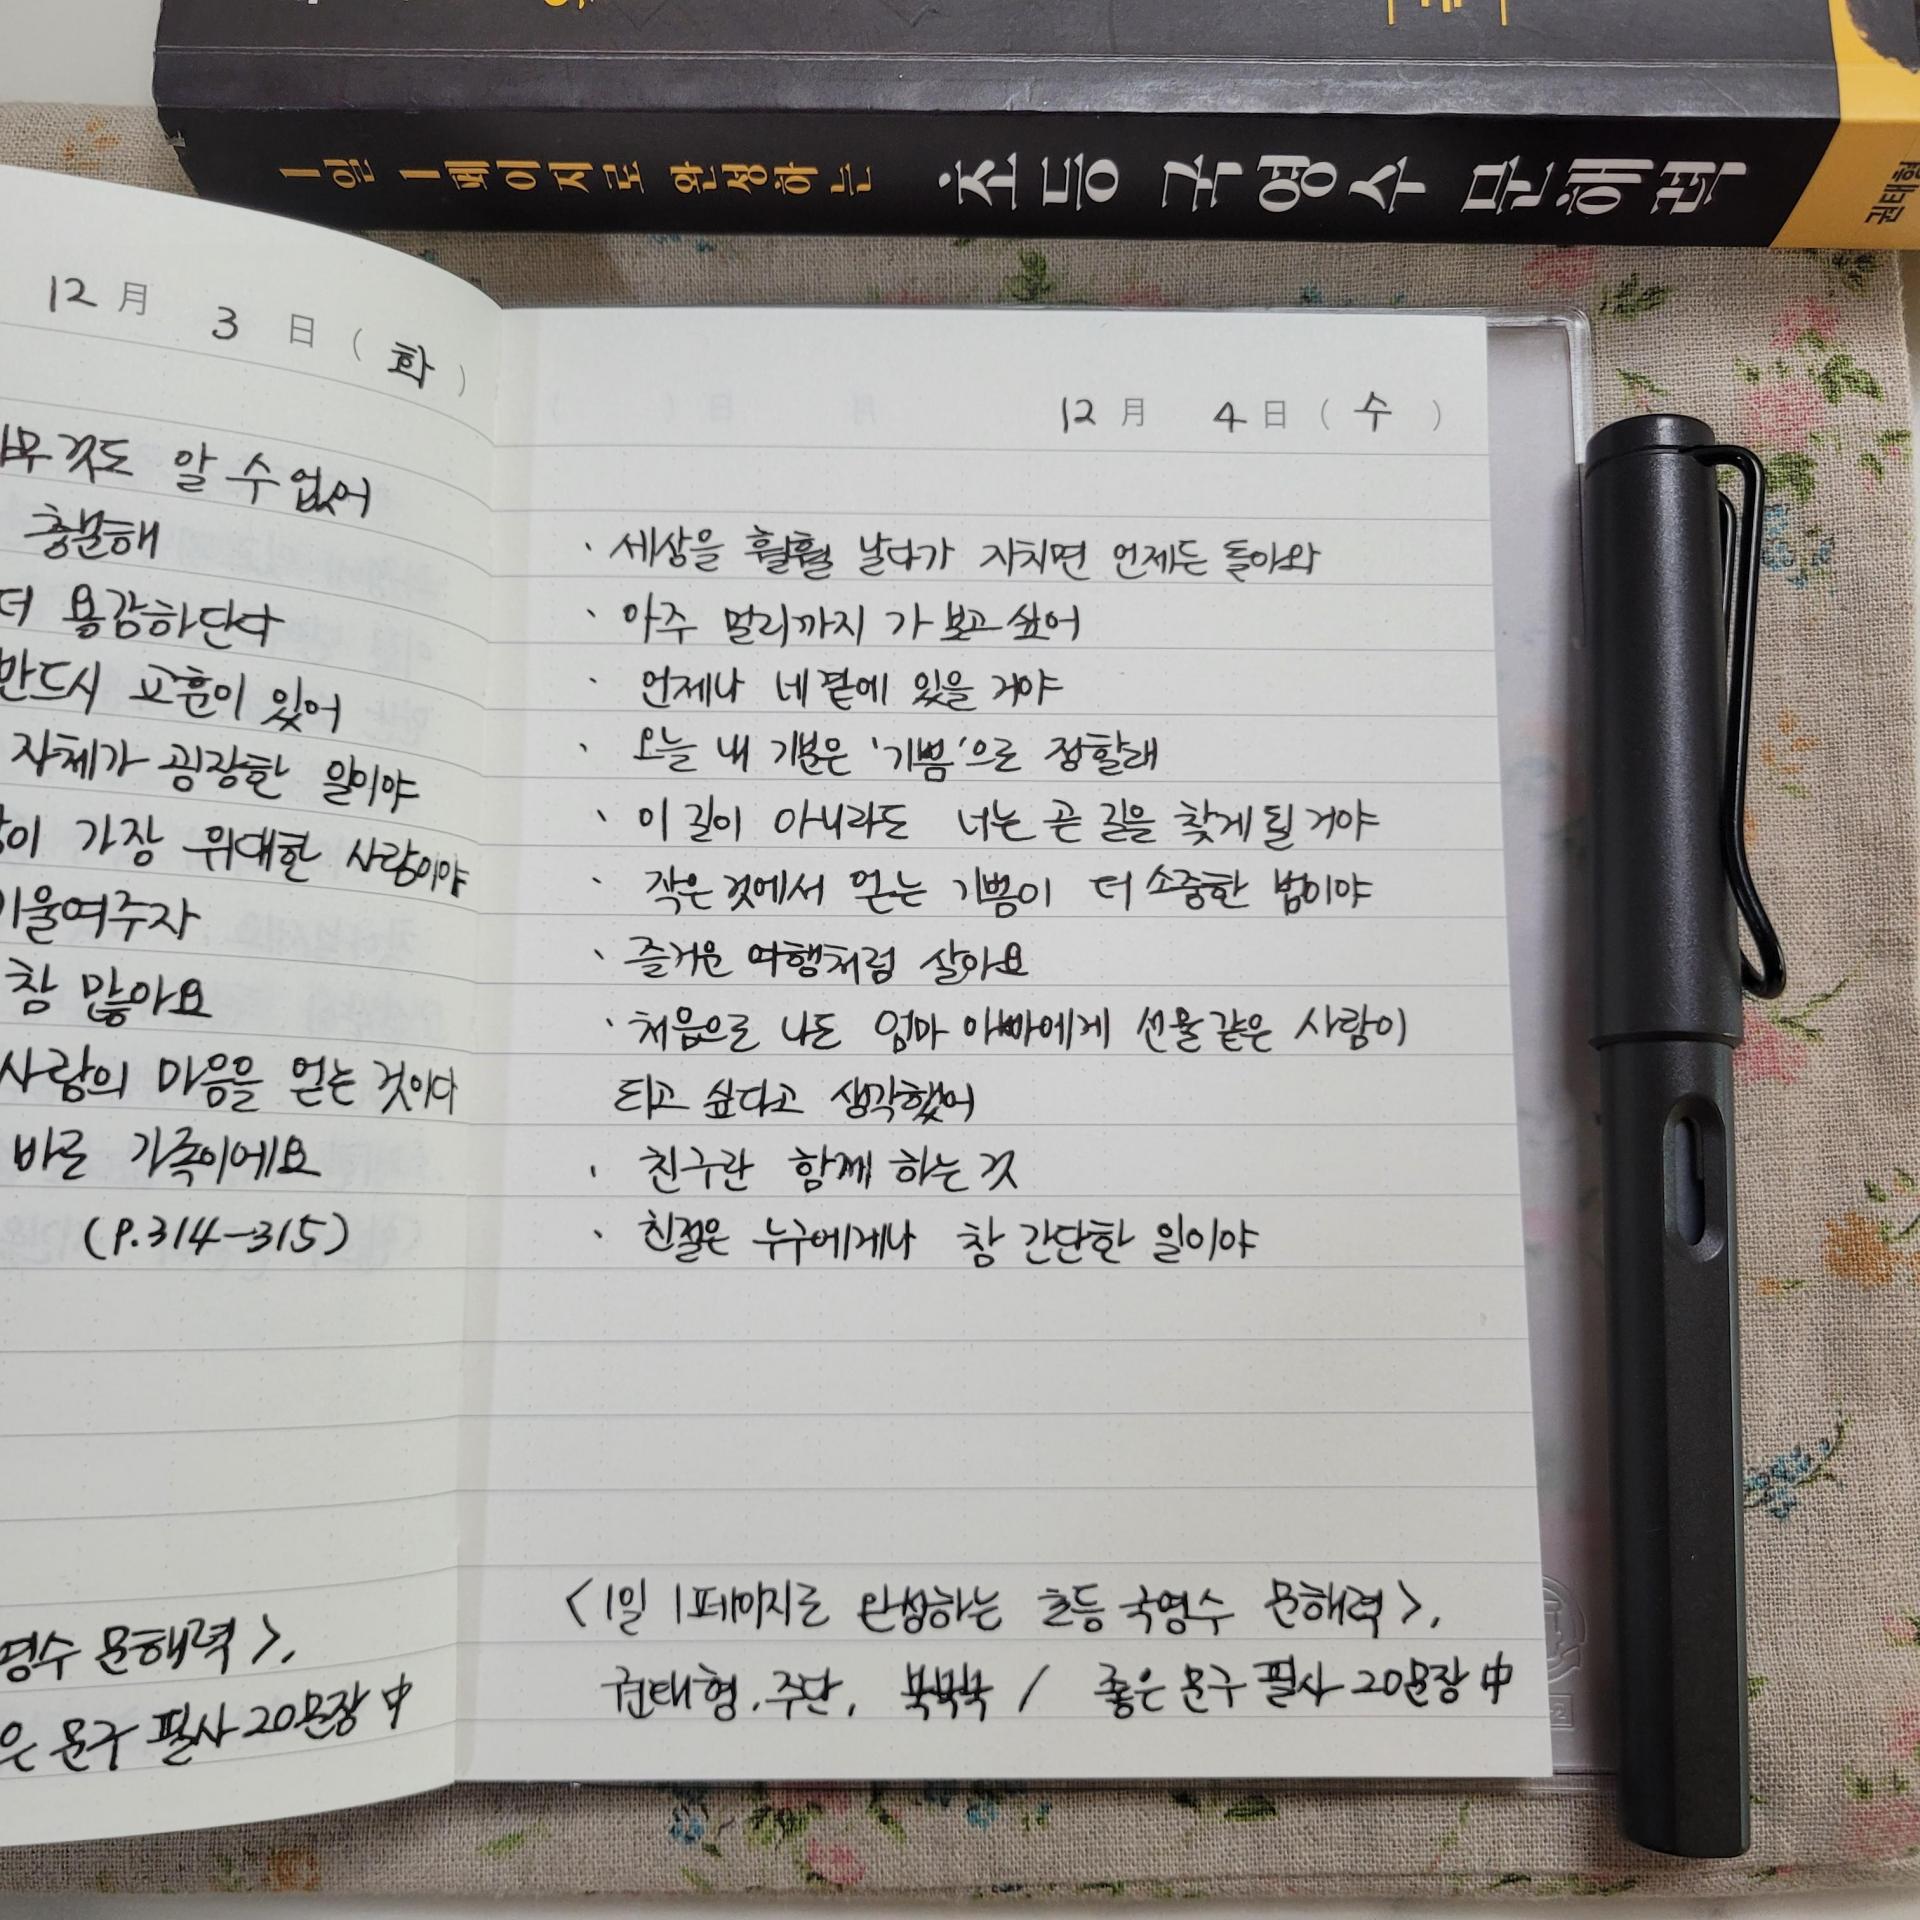 1일 1페이지로 완성하는 초등 국영수 문해력 권태형
12月 3日(화)
것도 알 수 없어
충분해
더 용감하단다
반드시 교훈이 있어
자체가 굉장한 일이야
가장 위대한 사람이야
기울여주자
참 많아요
사람의 마음을 얻는 것이다
바로 가족이에요
(P.314-315)
영수 문해력>,
은 문구 필사 20문장 中
12月 4日(수)
· 세상을 훨훨 날다가 지치면 언제든 돌아와
· 아주 멀리까지 가 보고 싶어
· 언제나 네 곁에 있을 거야
· 오늘 내 기분은 '기쁨'으로 정할래
· 이 길이 아니라도 너는 곧 길을 찾게 될 거야
· 작은 것에서 얻는 기쁨이 더 소중한 법이야
· 즐거운 여행처럼 살아요
· 처음으로 나도 엄마 아빠에게 선물 같은 사람이
되고 싶다고 생각했어
· 친구란 함께 하는 것
· 친절은 누구에게나 참 간단한 일이야
<1일 1페이지로 완성하는 초등 국영수 문해력>,
권태형.주단, 북북북 / 좋은 문구 필사 20문장 中